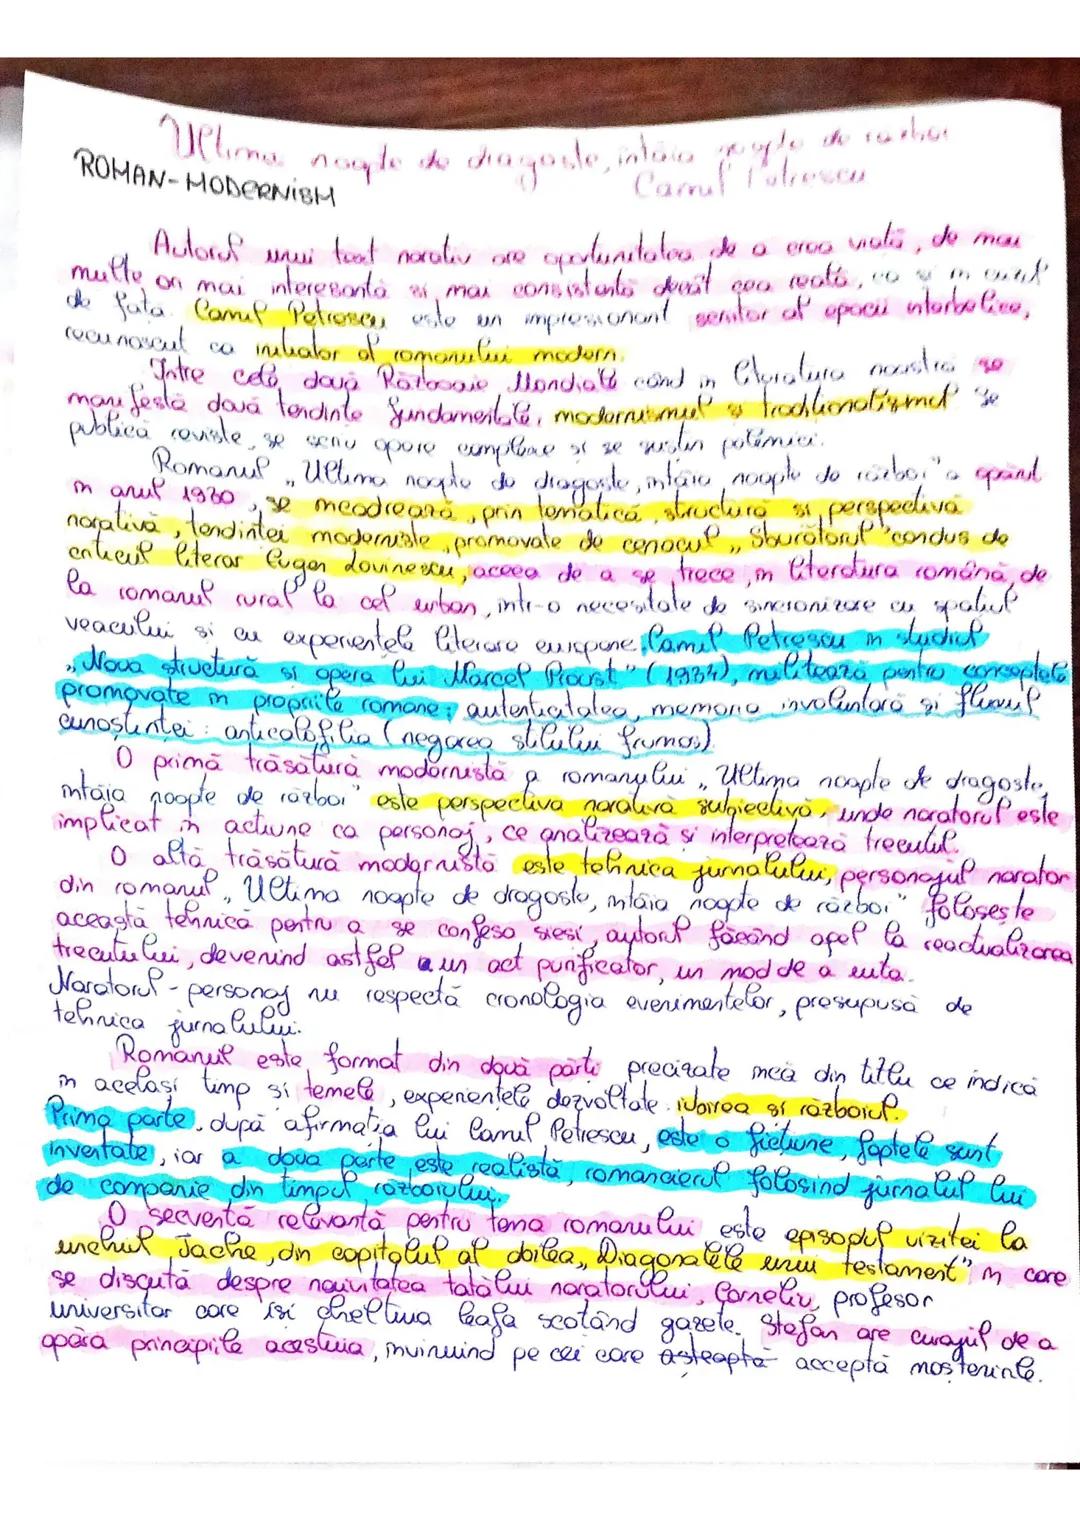 Ultima noapte de dragoste, întâia noapte de război
ROMAN-MODERNISM
Camil Petrescu
Autorul unui text narativ are oportunitatea de a crea viată, de mai
multe ori mai interesantă si mai consistentă decât cea reală, ca si in cazul
de fată. Camil Petrescu este un impresionant scriitor al epocii interbelice,
recunoscut ca initiator al romanului modern.
Intre cele două Războaie Mondiale când in literatura noastră se
manifestă două tendinte fundamentale, modernismul si traditionalismul se
publică reviste, se scriu opere complexe si se sustin polemici.
Romanul „Ultima noapte de dragoste, intâia noapte de război" a apărut
in anul 1930, se incadrează, prin tematică, structură si perspectivă
narativă, tendintei moderniste, promovate de cenaclul „Sburătorul" condus de
criticul literar Eugen Lovinescu, aceea de a se trece, in literatura română, de
la romanul rural la cel urban, intr-o necesitate de sincronizare cu spatiul
veacului si cu experientele literare europene. Camil Petrescu in studiul
„Noua structură si opera lui Marcel Proust" (1934), militează pentru conceptele
promovate in propriile romane: autenticitatea, memoria involuntară si fluxul
cunoștintei: anticalofilia (negarea stilului frumos)
O primă trăsătură modernistă a romanului „Ultima noapte de dragoste,
intâia noapte de război" este perspectiva narativă subiectivă, unde naratorul este
implicat in actiune ca personaj, ce analizează și interpretează trecutul.
O altă trăsătură modernistă este tehnica jurnalului, personajul narator
din romanul „Ultima noapte de dragoste, intâia noapte de război" folosește
această tehnică pentru a se confesa siesi, autorul făcând apel la reactualizarea
trecutului, devenind astfel un act purificator, un mod de a uita.
Naratorul-personaj nu respectă cronologia evenimentelor, presupusă de
tehnica jurnalului.
Romanul este format din două părti precizate incă din titlu ce indică
in acelasi timp si temele, experientele dezvoltate: iubirea si războiul.
Prima parte, după afirmatia lui Camil Petrescu, este o fictiune, faptele sunt
inventate, iar a doua parte este realistă, romancierul folosind jurnalul lui
de companie din timpul războiului.
O secventă relevantă pentru tema romanului este episodul vizitei la
unchiul Tache, din capitolul al doilea „Diagonalele unui testament" in care
se discută despre naivitatea tatălui naratorului, Corneliu, profesor
universitar care isi cheltuia leafa scotând gazete. Stefan are curajul de a
apăra principiile acestuia, invinuind pe cei care asteaptă acceptă mostenirile.